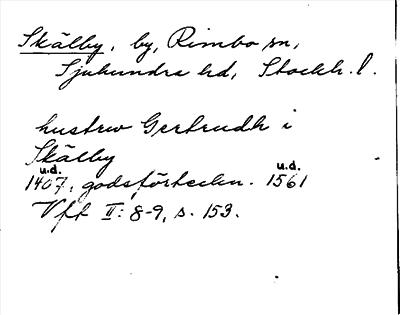 Skälby, by, Rimbo sn,
Sjuhundra hd, Stockh. l.
hustrw Gertrudh i
Skälby
u.d. u.d.
1407, godsförteckn. 1561
Vft II: 8-9, s. 153.